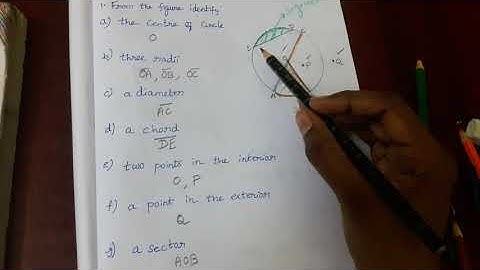 1. From the figure identify:
a) the centre of circle
O
b) three radii
OA, OB, OC
c) a diameter
AC
d) a chord
DE
e) two points in the interior
O, P
f) a point in the exterior
Q
g) a sector
AOB
P
Q